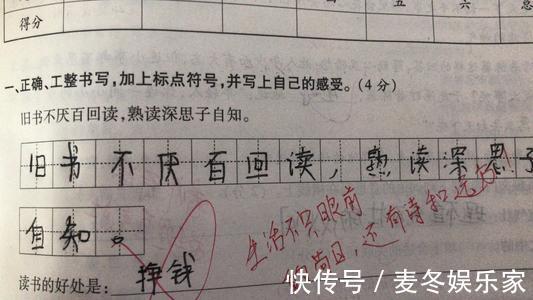 五 六 总
得分
一、正确、工整书写,加上标点符号,并写上自己的感受。(4分)
旧书不厌百回读,熟读深思子自知。
旧书不厌百回读,熟读深思子
自知。
生活不只眼前
的苟且,还有诗和远方!
读书的好处是: 挣钱
快传号 / 麦冬娱乐家